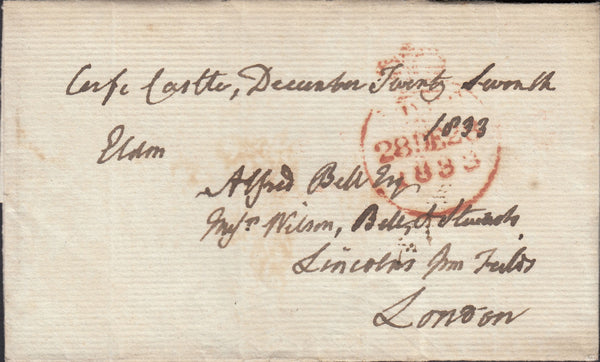 Corfe Castle, December Twenty Seventh
1833
Eldon
28 DE 28
1833
Alfred Bell Esq
Mess.rs Wilson, Bell, & Stewards
Lincolns Inn Fields
London